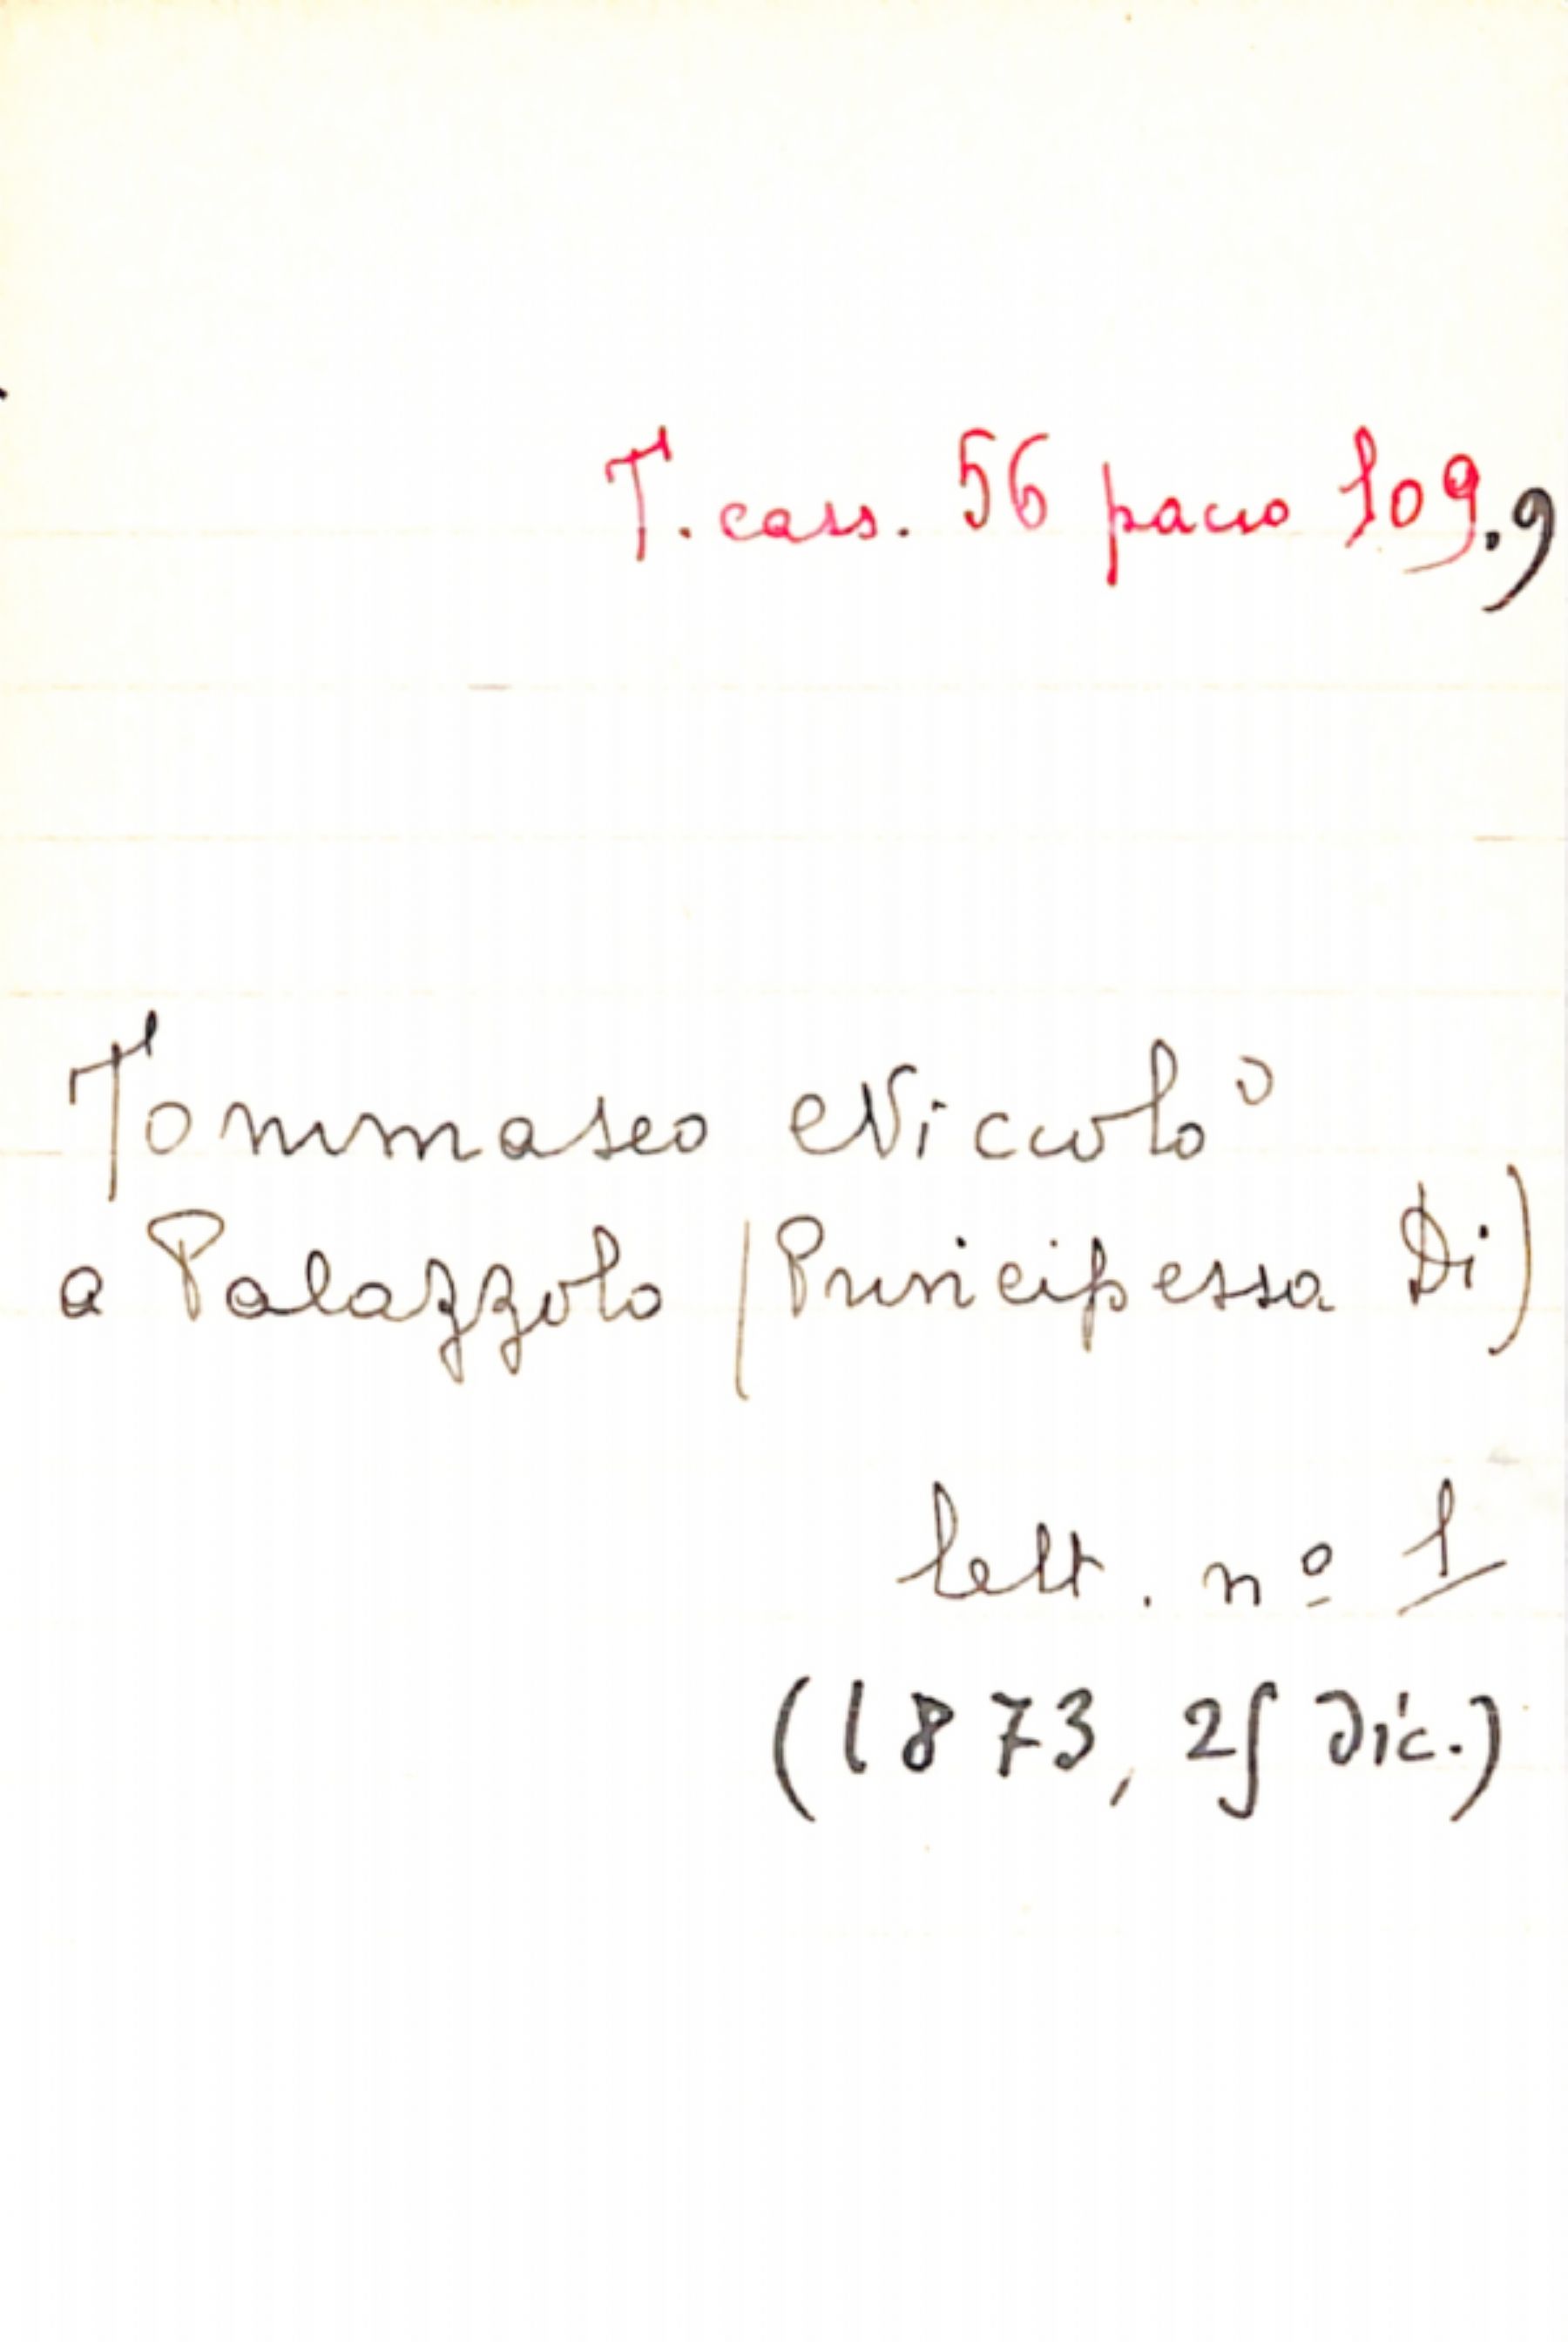 T. cass. 56 pacco 109.9
Tommaseo Niccolò
a Palazzolo (Principessa Di)
lett. nº 1
(1873, 25 dic.)